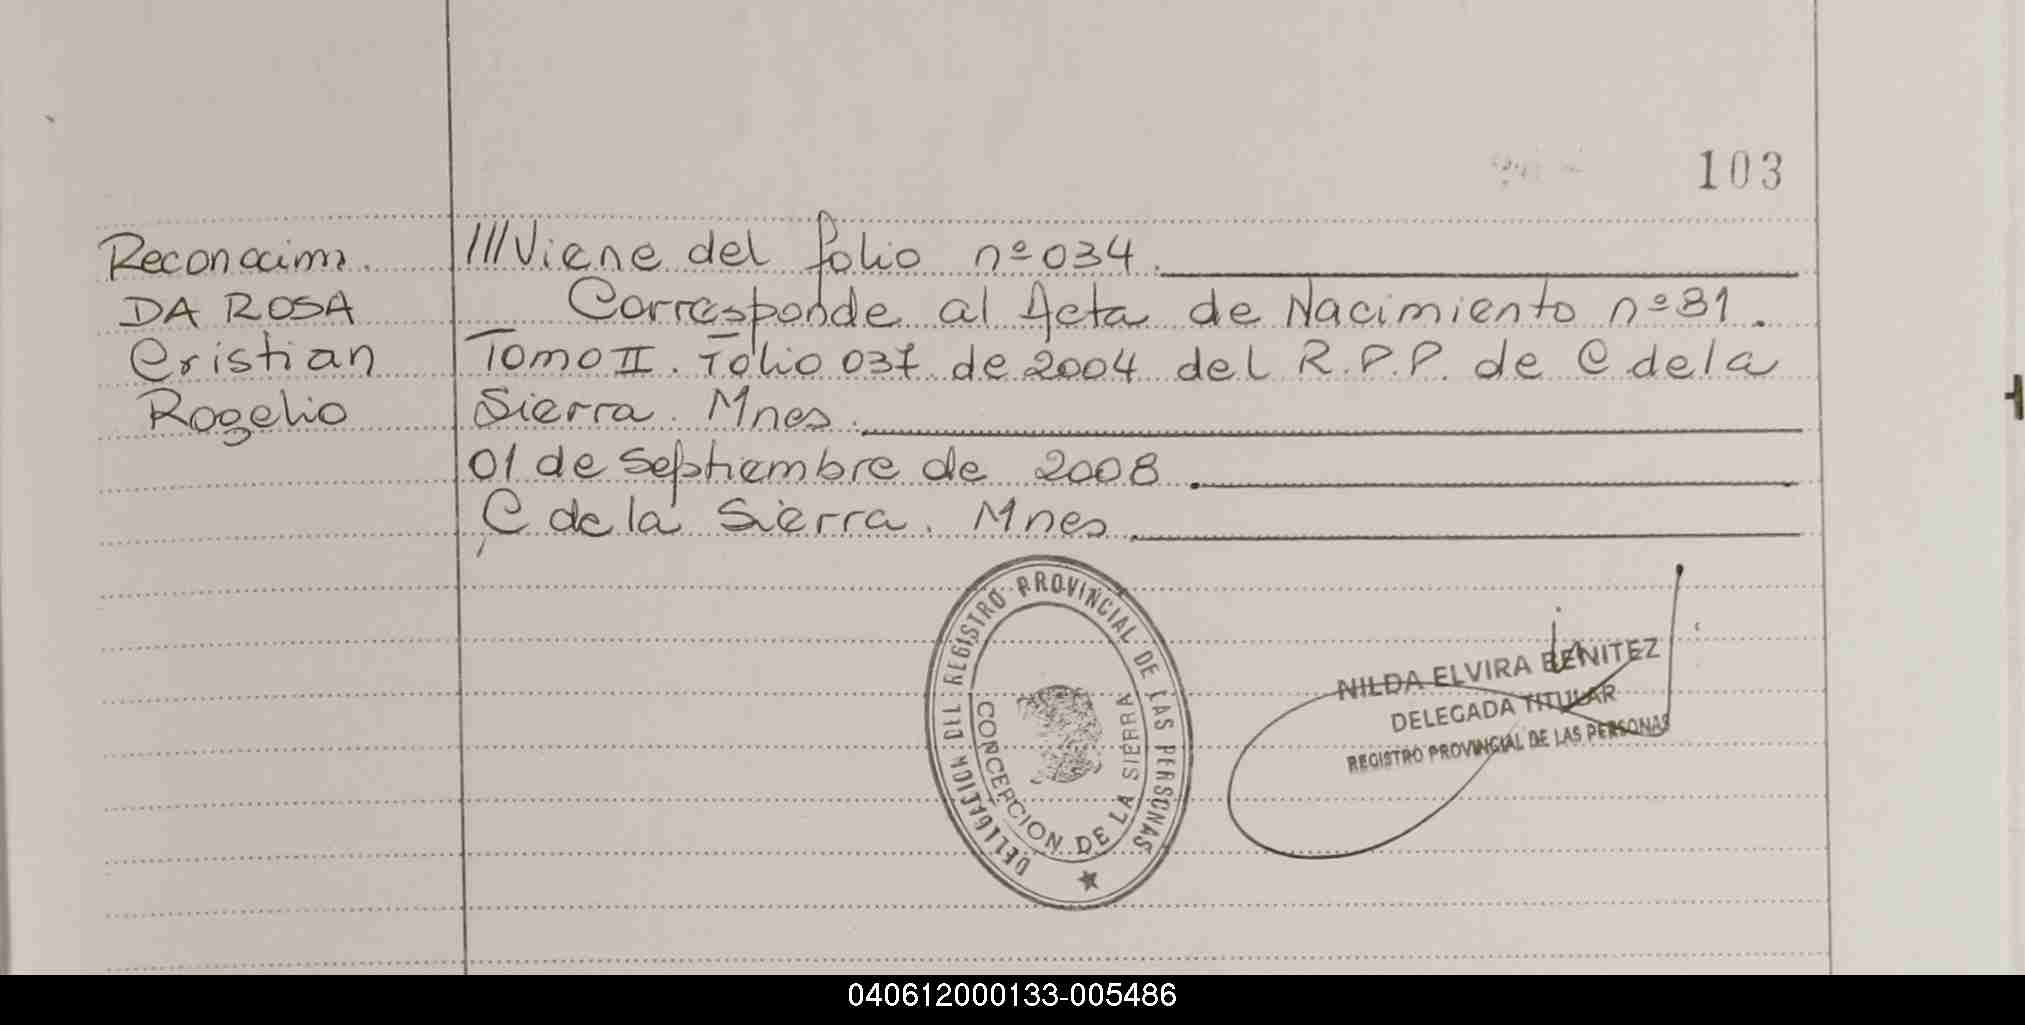 103
Reconocim.
DA ROSA
Cristian
Rogelio
///Viene del folio nº 034.
Corresponde al Acta de Nacimiento nº 81.
Tomo II. Folio 037 de 2004 del R.P.P. de C de la
Sierra. Mnes.
01 de Septiembre de 2008.
C de la Sierra. Mnes
DELEGACION DEL REGISTRO PROVINCIAL DE LAS PERSONAS
CONCEPCION DE LA SIERRA
NILDA ELVIRA BENITEZ
DELEGADA TITULAR
REGISTRO PROVINCIAL DE LAS PERSONAS
040612000133-005486